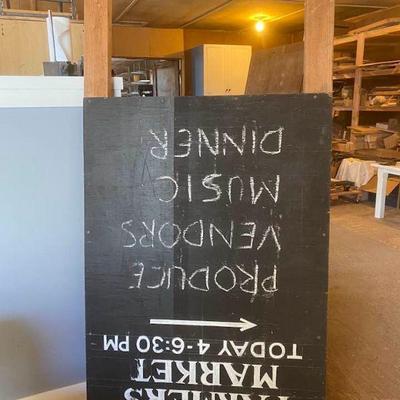 FARMERS
MARKET
TODAY 4-6:30 PM
PRODUCE
VENDORS
MUSIC
DINNER